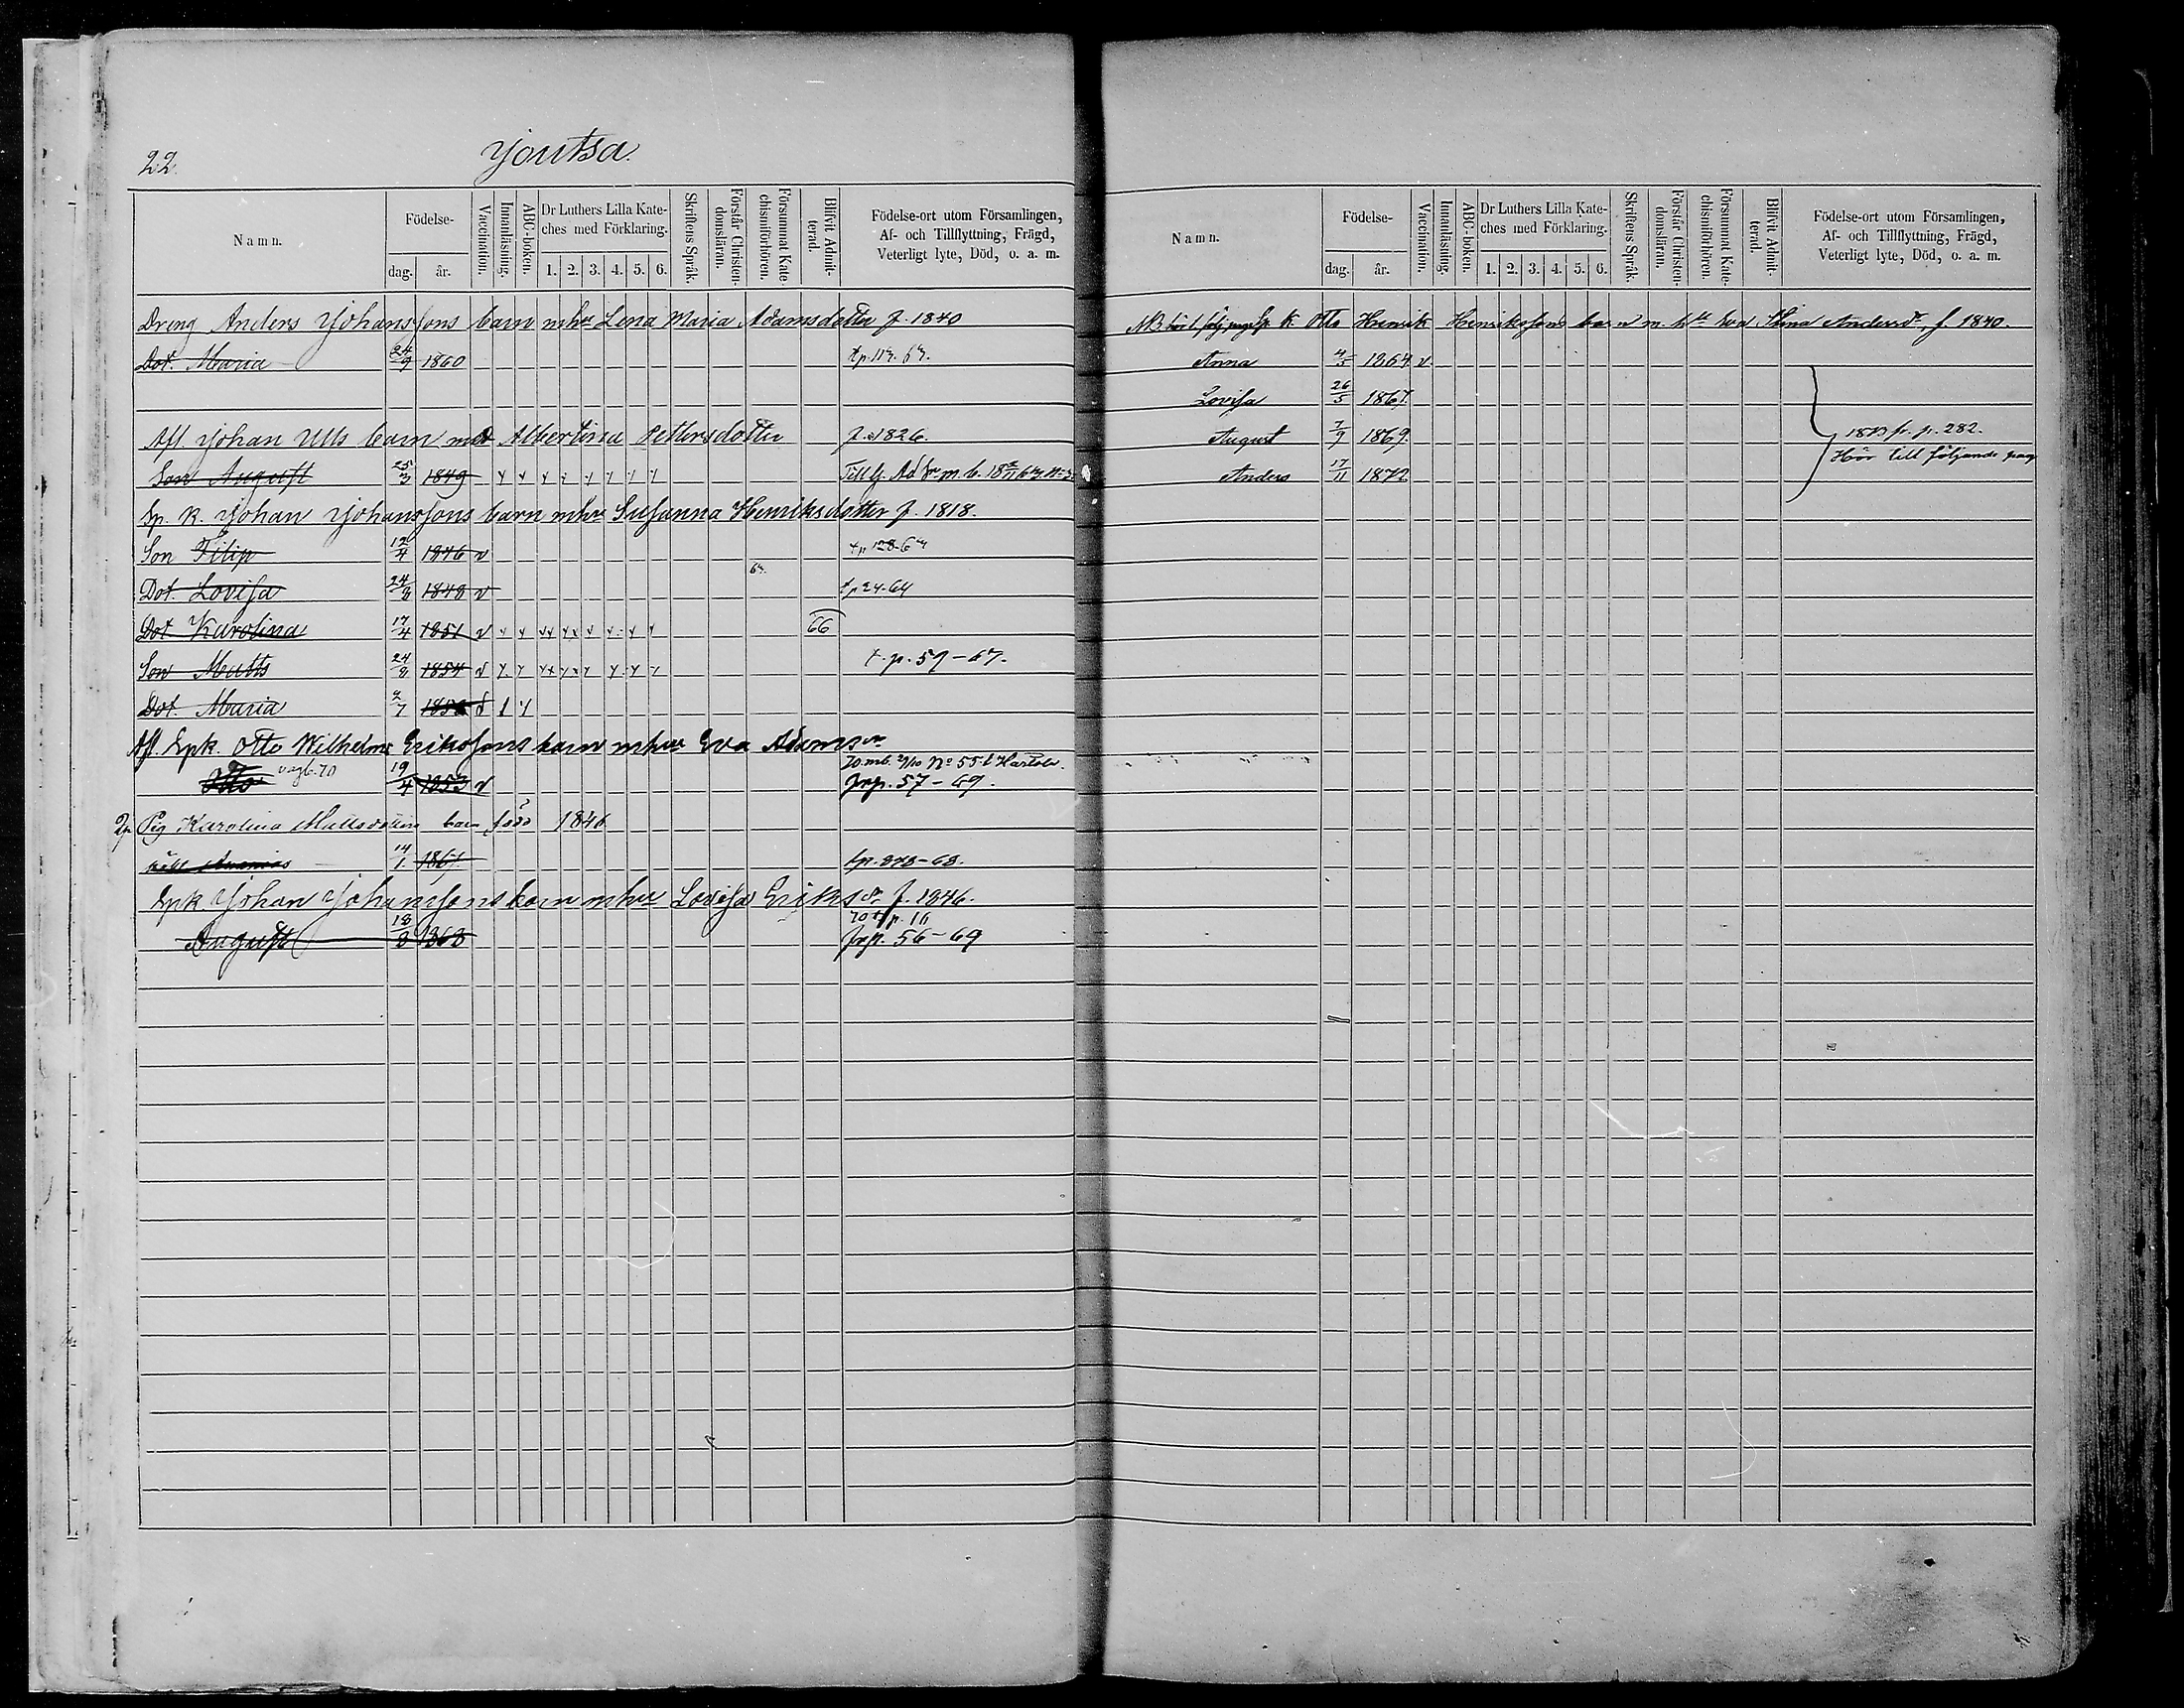 22.
Joutsa.
Namn.
Födelse-
dag.
år.
Vaccination.
Innanläsning.
ABC-boken.
Dr Luthers Lilla Kate-
ches med Förklaring.
1. 2. 3. 4. 5. 6.
Skriftens Språk.
Förstår Christen-
domsläran.
Försummat Kate-
chismiförhören.
Blifvit Admit-
terad.
Födelse-ort utom Församlingen,
Af- och Tillflyttning, Frägd,
Veterligt lyte, Död, o. a. m.
Dreng Anders Johanssons barn mhu Lena Maria Adamsdotter f. 1840
Dot. Maria 24/9 1860
Afl. Johan Ulls barn med Albertina Pettersdotter f. 1826.
Son August 25/3 1849
Sp. k. Johan Johanssons barn mhu Susanna Henriksdotter f. 1818.
Son Filip 12/4 1846 v
67.
Dot. Lovisa 24/8 1848 v tp 24-64
Dot Karolina 17/4 1851 v 66
Son Matts 24/8 1854 v t. p. 59-67.
Dot. Maria
Afl. Spk. Otto Wilhelm Erikssons barn mhu Eva Adamsdr
Otto 19/4 1853 v frp. 57-69.
Pig Karolina Mattsdotters barn född 1846
14/1 1867 tp. 878-68.
Spk. Johan Johanssons barn mhu Lovisa Eriksdr f. 1846.
70 tp. 16
August 18/8 1868 frp. 56-69
Namn.
Födelse-
dag.
år.
Vaccination.
Innanläsning.
ABC-boken.
Dr Luthers Lilla Kate-
ches med Förklaring.
1. 2. 3. 4. 5. 6.
Skriftens Språk.
Förstår Christen-
domsläran.
Försummat Kate-
chismiförhören.
Blifvit Admit-
terad.
Födelse-ort utom Församlingen,
Af- och Tillflyttning, Frägd,
Veterligt lyte, Död, o. a. m.
Sp. K. Otto Henrik Henrikssons barn m. hu Eva Stina Andersdr f. 1840.
Anna 4/5 1864 v.
Lovisa 26/5 1867.
August 7/9 1869. 1873 fr. p. 282.
Hör till följande pag
Anders 17/11 1872